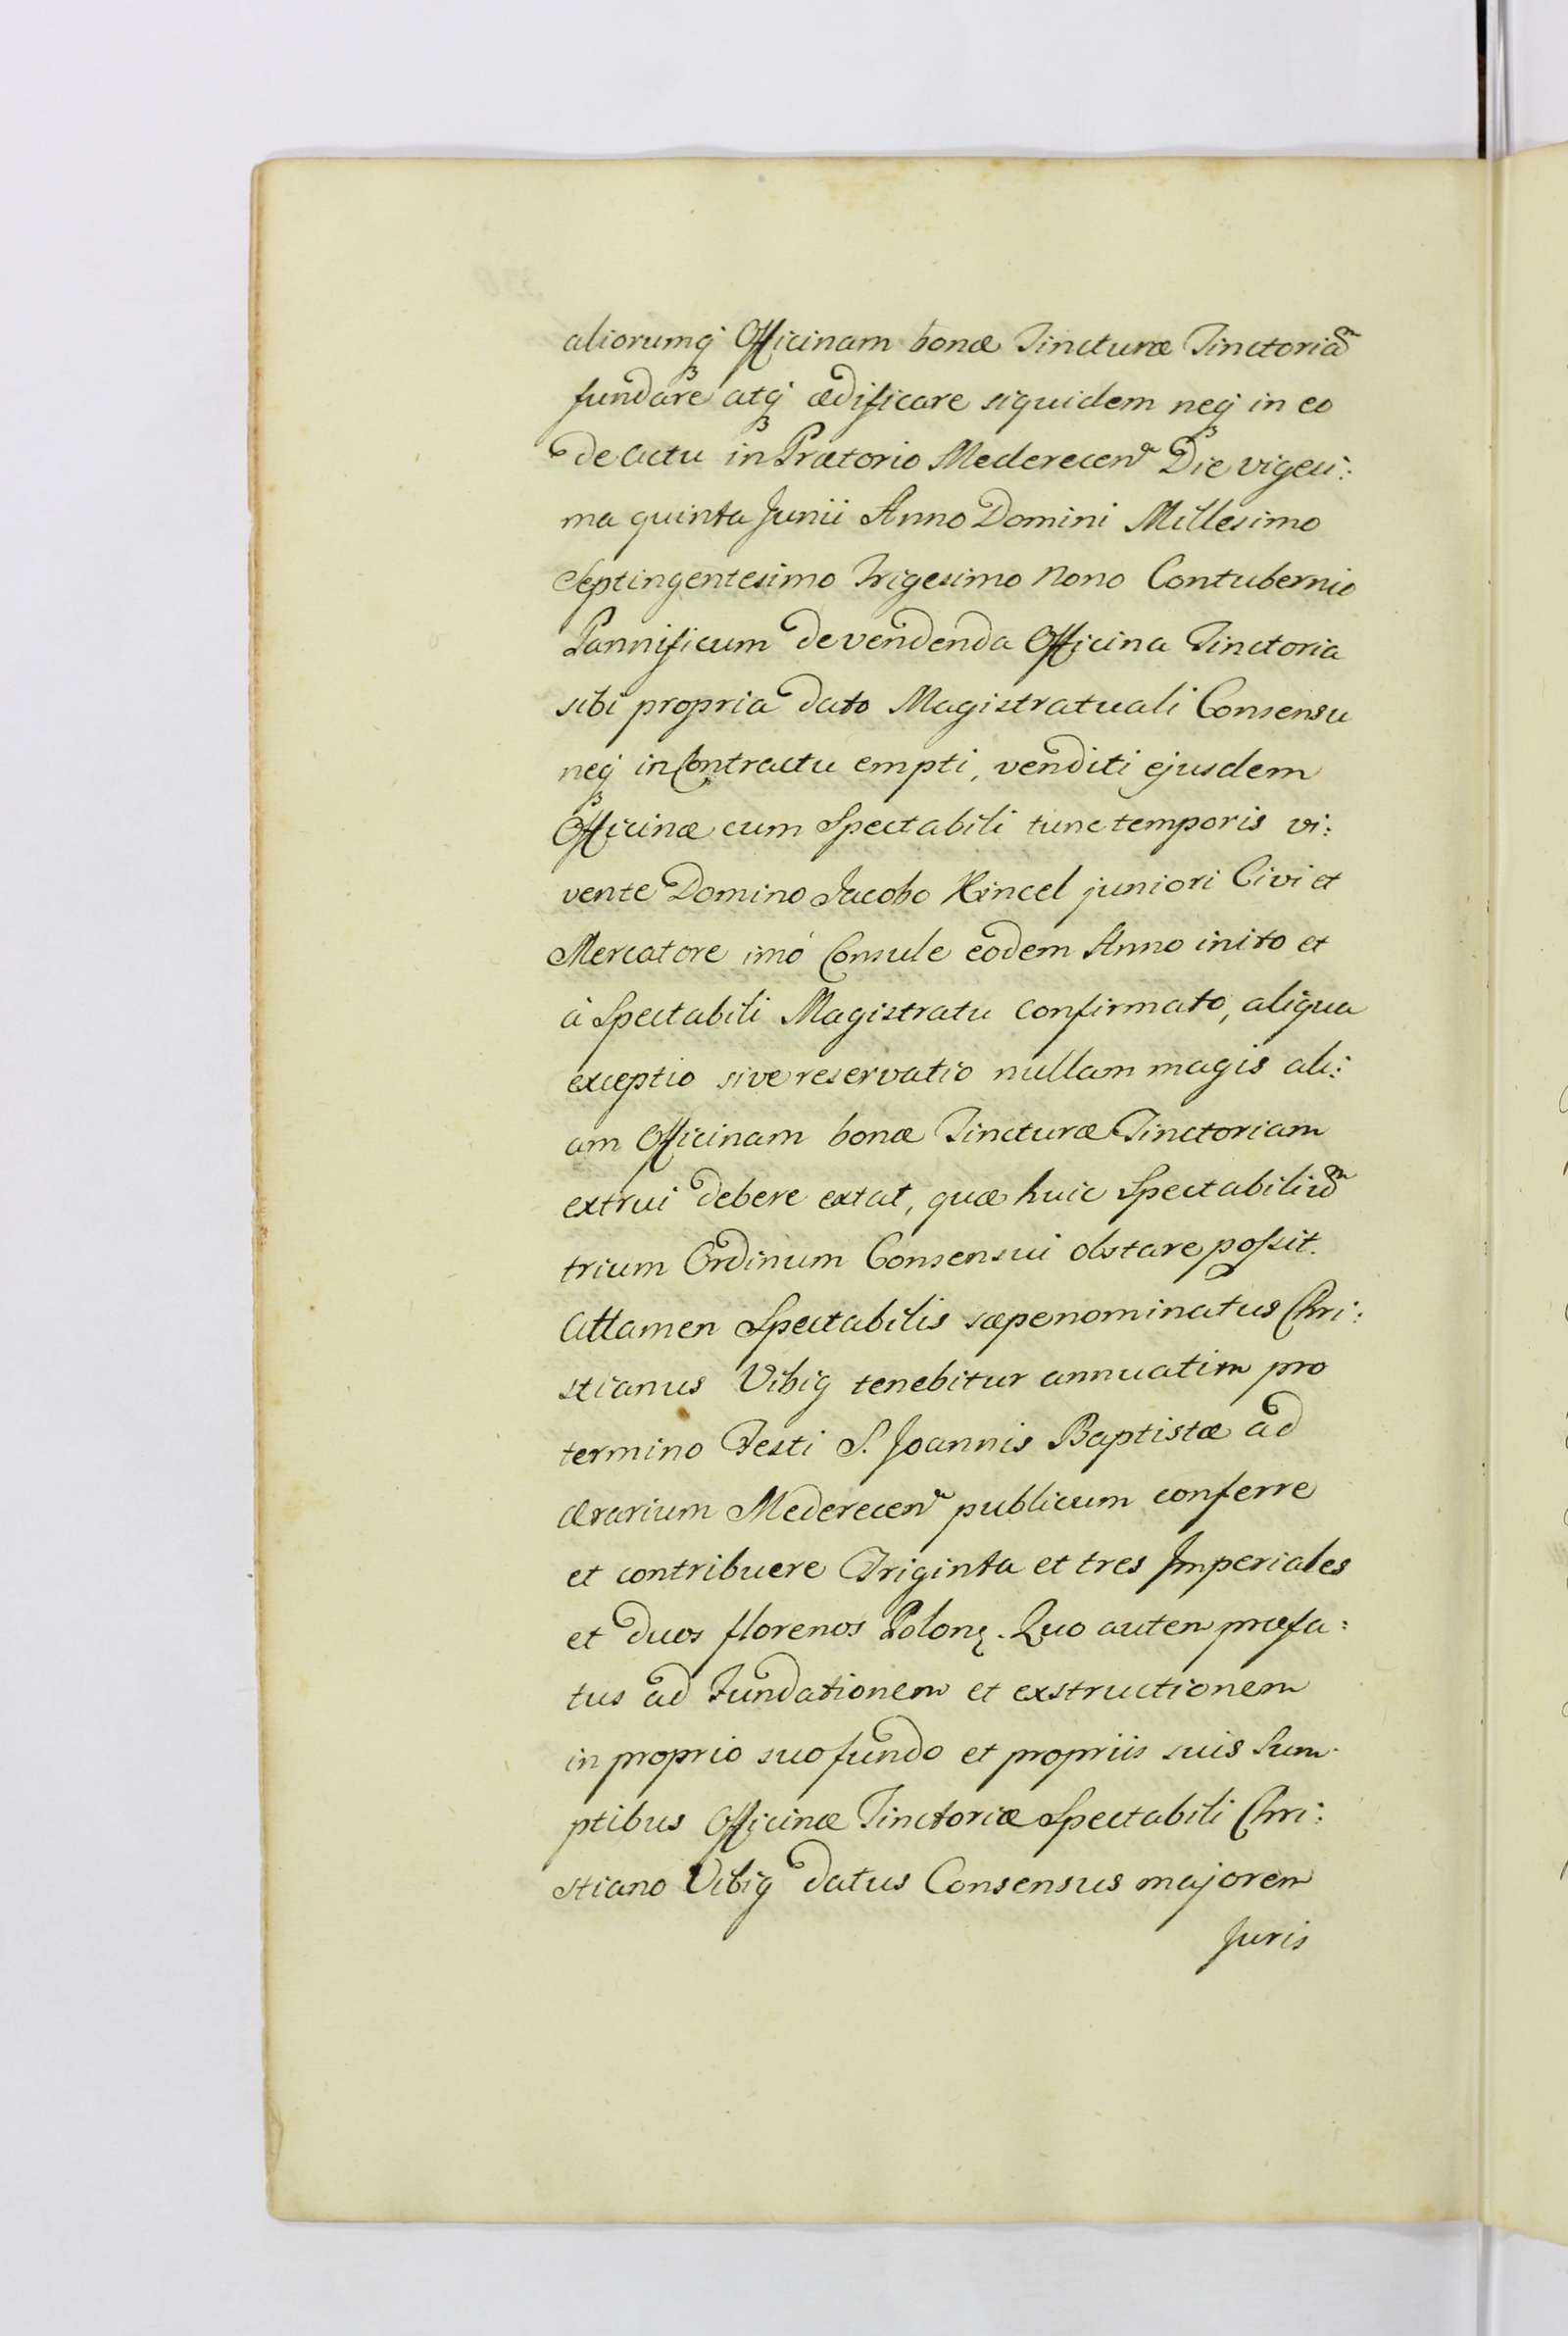 aliorumqꝫ Officinam bonæ Tincturæ Tinctoriam̃
fundare atqꝫ ædificare siquidem neqꝫ in eo
de actu in Prætorio Mederecenˢⁱ Die vigesi:
ma quinta Junii Anno Domini Millesimo
Septingentesimo Trigesimo Nono Contubernio
Pannificum de vendenda Officina Tinctoria
sibi propria dato Magistratuali Consensu
neqꝫ in Contractu empti, venditi ejusdem
Officinæ cum Spectabili tunc temporis vi:
vente Domino Jacobo Hincel juniori Civi et
Mercatore imò Consule eodem Anno inito et
à Spectabili Magistratu confirmato, aliqua
exceptio sive reservatio nullam magis ali:
am Officinam bonæ Tincturæ Tinctoriam
extrui debere extat, quæ huic Spectabiliũm
trium Ordinum Consensui obstare possit.
Attamen Spectabilis sæpenominatus Chri:
stianus Vibig tenebitur annuatim pro
termino Festi S. Joannis Baptistæ ad
Ærarium Mederecenˢᵉ publicum conferre
et contribuere Triginta et tres Imperiales
et duos florenos Polonꝫ. Quo autem præfa:
tus ad Fundationem et exstructionem
in proprio suo fundo et propriis suis Sum-
ptibus Officinæ Tinctoriæ Spectabili Chri:
stiano Vibig datus Consensus majorem
Juris